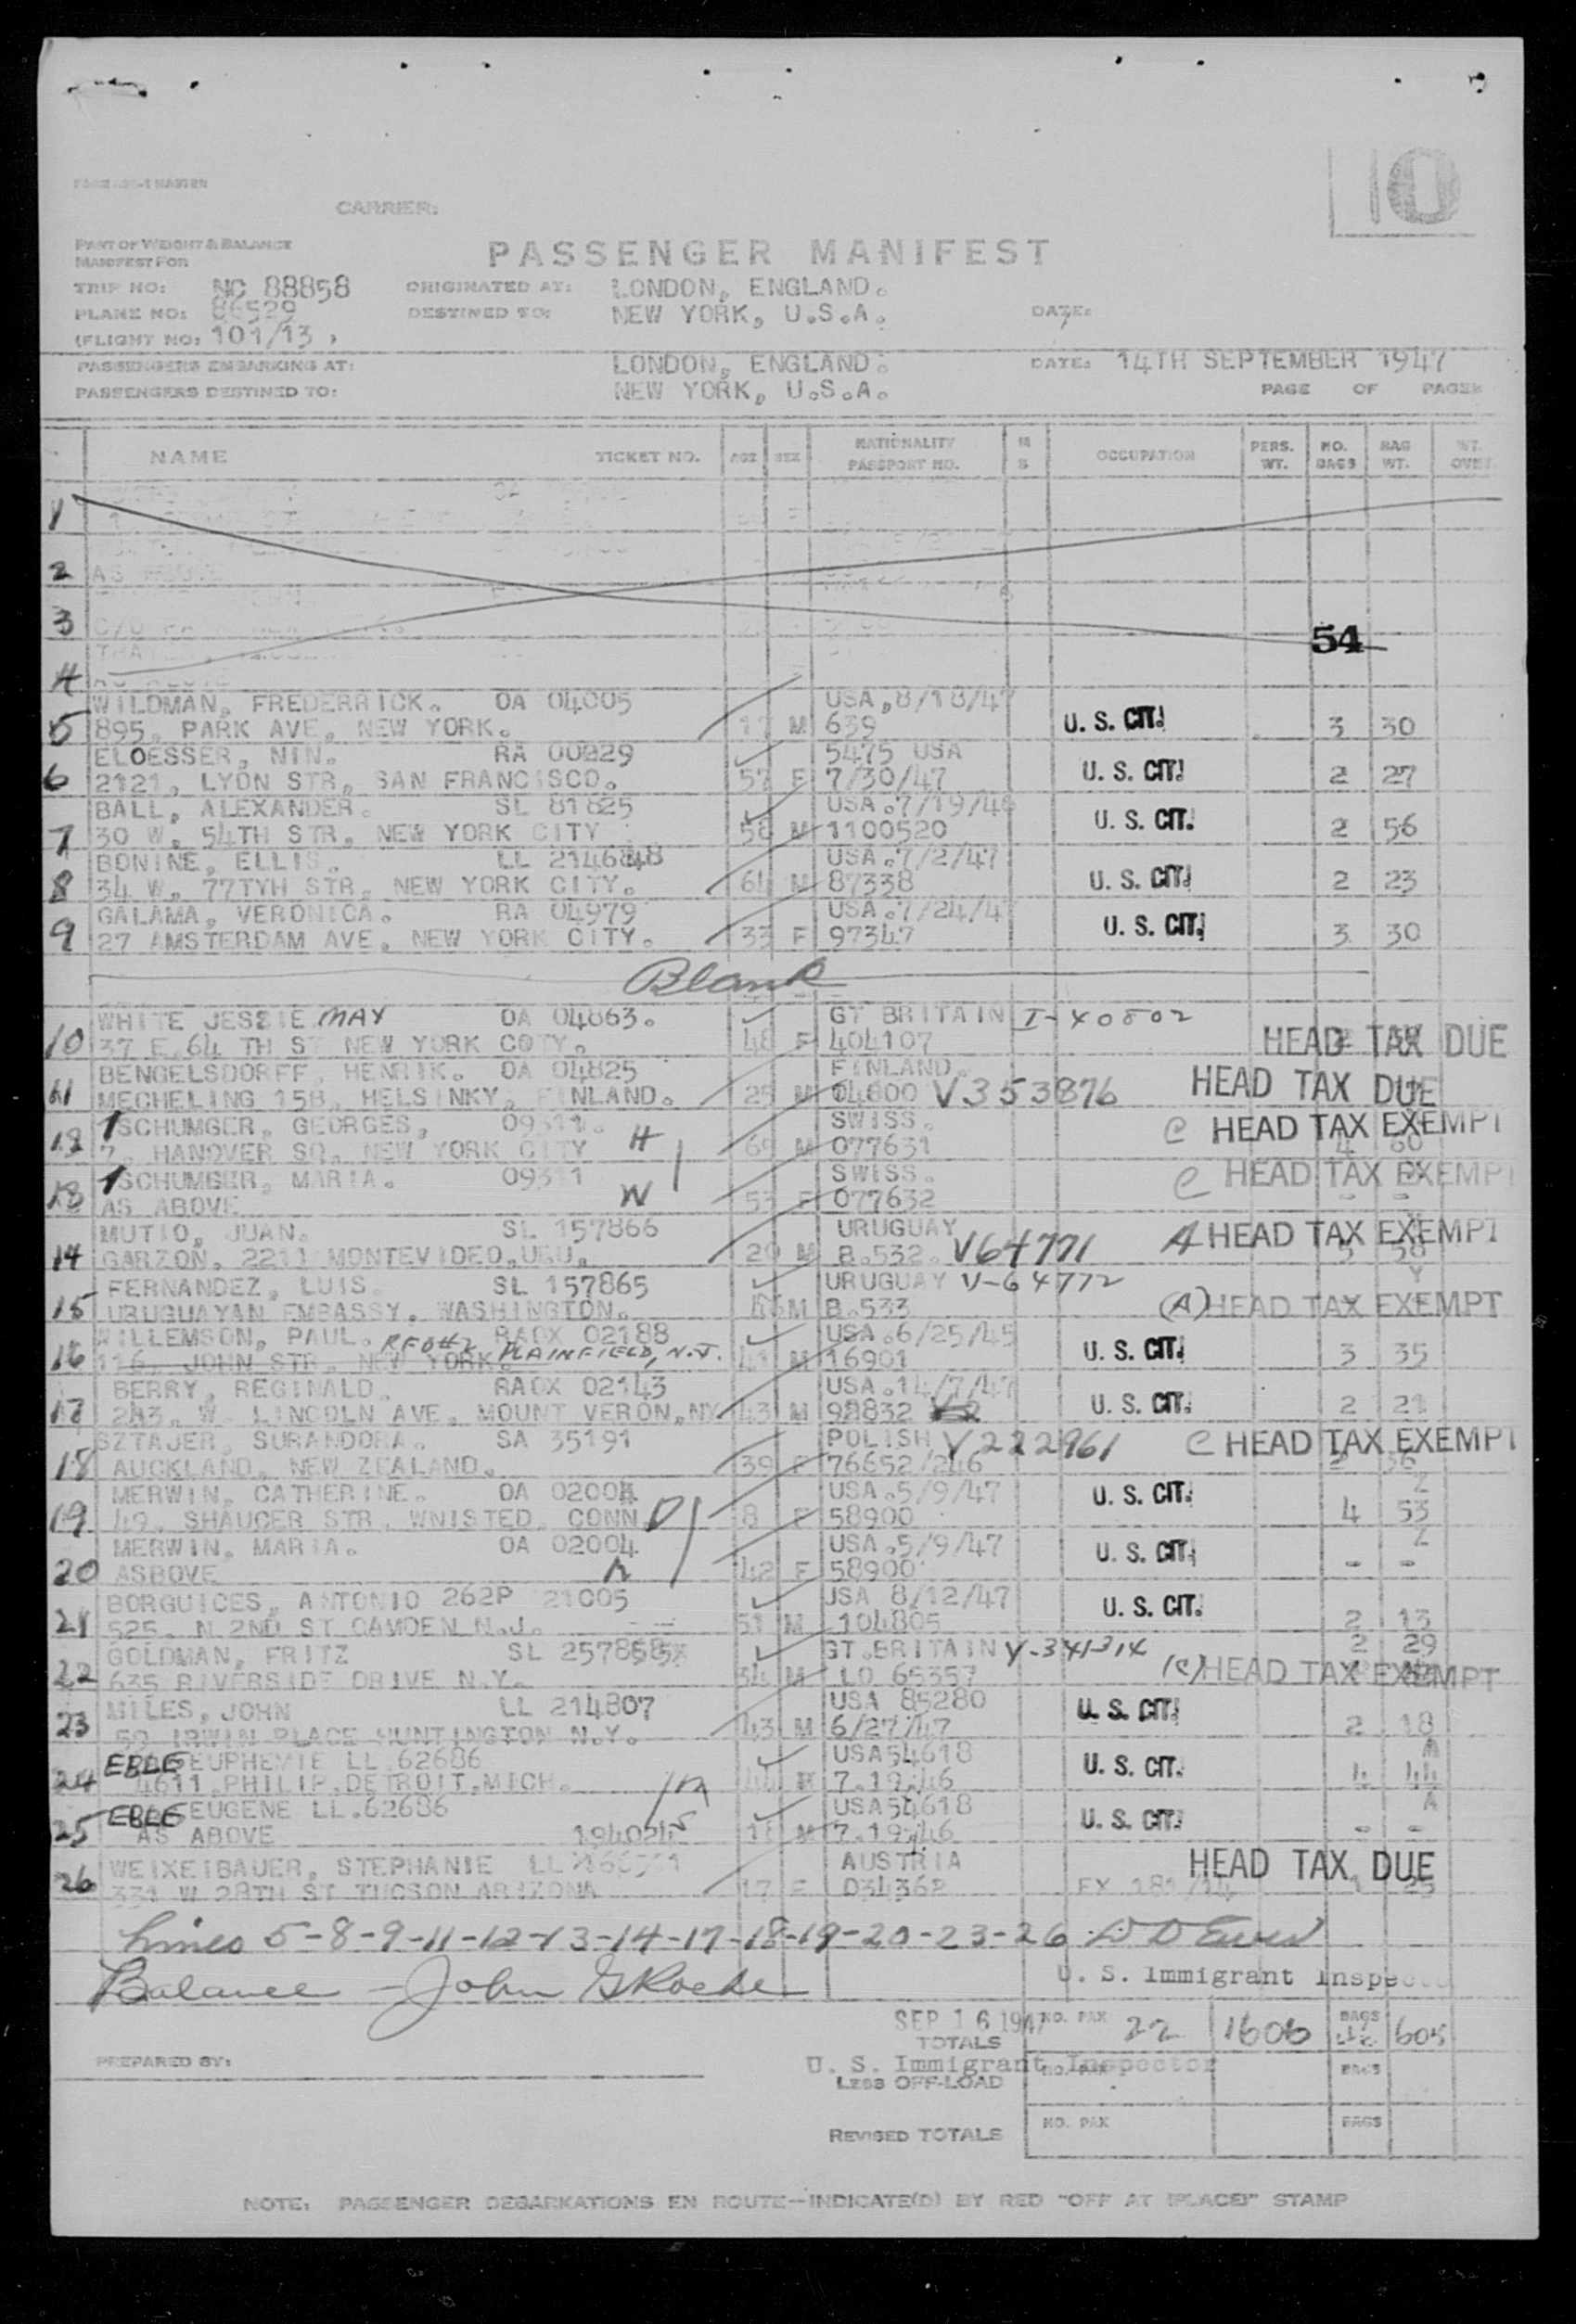 10
CARRIER:
PART OF WEIGHT & BALANCE
MANIFEST FOR
PASSENGER MANIFEST
TRIP NO: NC 88858 ORIGINATED AT: LONDON, ENGLAND.
PLANE NO: 86529 DESTINED TO: NEW YORK, U.S.A. DATE:
(FLIGHT NO: 101/13
PASSENGERS EMBARKING AT: LONDON, ENGLAND. DATE: 14TH SEPTEMBER 1947
PASSENGERS DESTINED TO: NEW YORK, U.S.A. PAGE OF PAGES
NAME TICKET NO. AGE SEX NATIONALITY PASSPORT NO. M S OCCUPATION PERS. WT. NO. BAGS BAG WT. WT. OVER
1
2
3
54
4
WILDMAN, FREDERRICK. OA 04005 USA,8/18/47
5 895, PARK AVE, NEW YORK. 17 M 639 U. S. CIT. 3 30
ELOESSER, NIN. RA 00829 5475 USA
6 2121, LYON STR, SAN FRANCISCO. 57 F 7/30/47 U. S. CIT. 2 27
BALL, ALEXANDER. SL 81825 USA.7/19/46
7 30 W. 54TH STR, NEW YORK CITY 58 M 1100520 U. S. CIT. 2 56
BONINE, ELLIS. LL 2146848 USA.7/2/47
8 34 W. 77TYH STR, NEW YORK CITY. 64 M 87338 U. S. CIT. 2 23
GALAMA, VERONICA. RA 04979 USA.7/24/47
9 27 AMSTERDAM AVE, NEW YORK CITY. 33 F 97347 U. S. CIT. 3 30
Blank
WHITE JESSIE MAY OA 04863. GT BRITAIN I-40802
10 37 E 64 TH ST NEW YORK COTY. 48 F 404107 HEAD TAX DUE
BENGELSDORFF, HENRIK. OA 04825 FINLAND.
11 MECHELING 15B, HELSINKY, FINLAND. 25 M 04600 V353876 HEAD TAX DUE
TSCHUMGER, GEORGES, 09311. SWISS. C HEAD TAX EXEMPT
12 7, HANOVER SQ, NEW YORK CITY H 69 M 077631 4 60
TSCHUMGER, MARIA. 09311 SWISS. C HEAD TAX EXEMPT
13 AS ABOVE W 53 F 077632 - -
MUTIO, JUAN. SL 157866 URUGUAY A HEAD TAX EXEMPT
14 GARZON, 2211 MONTEVIDEO,URU. 20 M B.532. V64771
FERNANDEZ, LUIS. SL 157865 URUGUAY V-64772 Y
15 URUGUAYAN EMBASSY, WASHINGTON. 46 M B.533 (A) HEAD TAX EXEMPT
WILLEMSON, PAUL. RAOX 02188 USA.6/25/45
RFD#2 PLAINFIELD, N.J.
16 116, JOHN STR, NEW YORK. 41 M 16901 U. S. CIT. 3 35
BERRY, REGINALD. RAOX 02143 USA.14/7/47
17 243, W. LINCOLN AVE, MOUNT VERON,NY 43 M 98832 U. S. CIT. 2 21
SZTAJER, SURANDORA. SA 35191 POLISH V222961 C HEAD TAX EXEMPT
18 AUCKLAND, NEW ZEALAND. 39 F 76652/246 2 36
MERWIN, CATHERINE. OA 02004 USA.5/9/47 Z
19 49, SHAUCER STR, WNISTED, CONN D 8 F 58900 U. S. CIT. 4 53
MERWIN, MARIA. OA 02004 USA.5/9/47 Z
20 ASBOVE 42 F 58900 U. S. CIT. - -
BORGUICES, ANTONIO 262P 21005 USA 8/12/47
21 525, N 2ND ST CAMDEN N.J. 51 M 104805 U. S. CIT. 2 13
GOLDMAN, FRITZ SL 257858 GT.BRITAIN V-341314 2 29
22 635 RIVERSIDE DRIVE N.Y. 34 M LO 65357 (C) HEAD TAX EXEMPT
MILES, JOHN LL 214807 USA 85280
23 59 IRWIN PLACE HUNTINGTON N.Y. 43 M 6/27/47 U. S. CIT. 2 18
EBLE EUPHEMIE LL.62686 USA54618 A
24 4611,PHILIP,DETROIT,MICH. m 44 7.19.46 U. S. CIT. 4 44
EBLE EUGENE LL.62686 USA54618 A
25 AS ABOVE S 18 M 7.19.46 U. S. CIT. - -
WEIXEIBAUER, STEPHANIE LL AUSTRIA HEAD TAX DUE
26 331 W 28TH ST TUCSON ARIZONA 17 F 03436P 1 25
Lines 5-8-9-11-12-13-14-17-18-19-20-23-26
Balance - John G Roche U. S. Immigrant Inspector
SEP 16 1947 NO. PAX 22 1606 BAGS 605
TOTALS
PREPARED BY: U. S. Immigrant Inspector
LESS OFF-LOAD NO. PAX BAGS
REVISED TOTALS NO. PAX BAGS
NOTE: PASSENGER DEBARKATIONS EN ROUTE—INDICATE(D) BY RED "OFF AT (PLACE)" STAMP